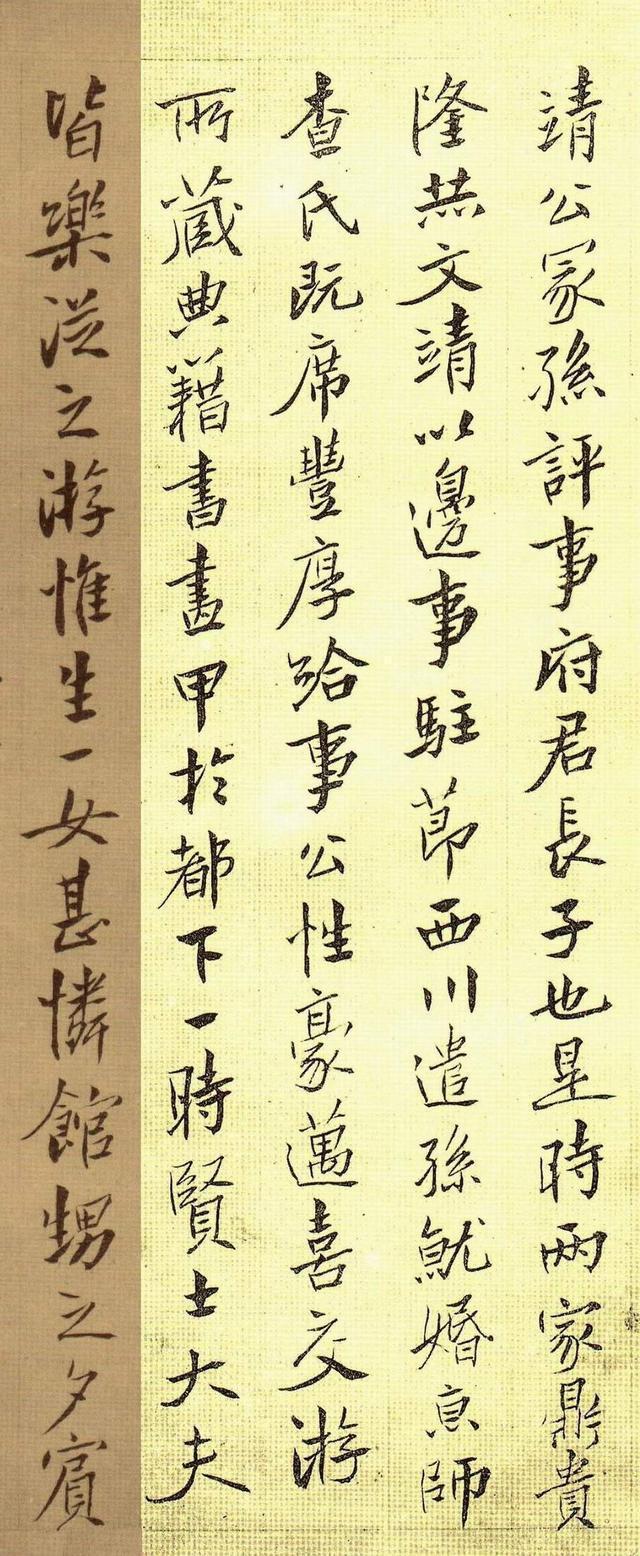 靖公冢孫評事府君長子也是時两家鼎貴
隆赫文靖以邊事駐節西川遣孫就婚京師
查氏既席豐厚給事公性豪邁喜交游
所藏典籍書畫甲於都下一時賢士大夫
皆樂從之游惟生一女甚憐館甥之夕賓